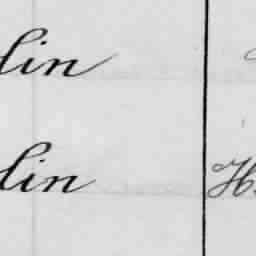 lin
lin H.